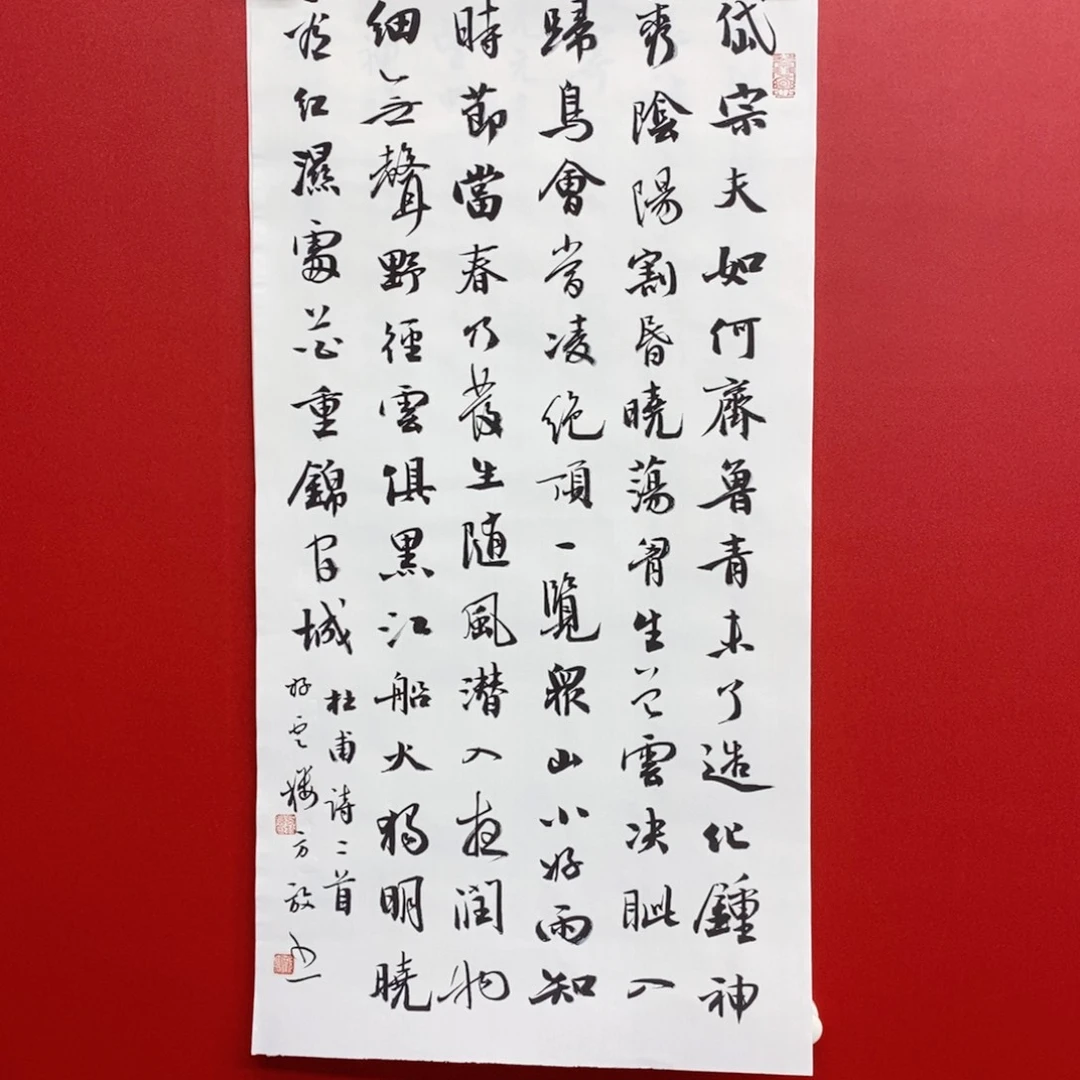 岱宗夫如何齊魯青未了造化鍾神
秀陰陽割昏曉蕩胷生曾雲决眦入
歸鳥會當凌絶頂一覽眾山小好雨知
時節當春乃發生随風潜入夜潤物
細無聲野徑雲俱黑江船火獨明曉
看紅濕處花重錦官城
杜甫詩二首
好雲樓方放書